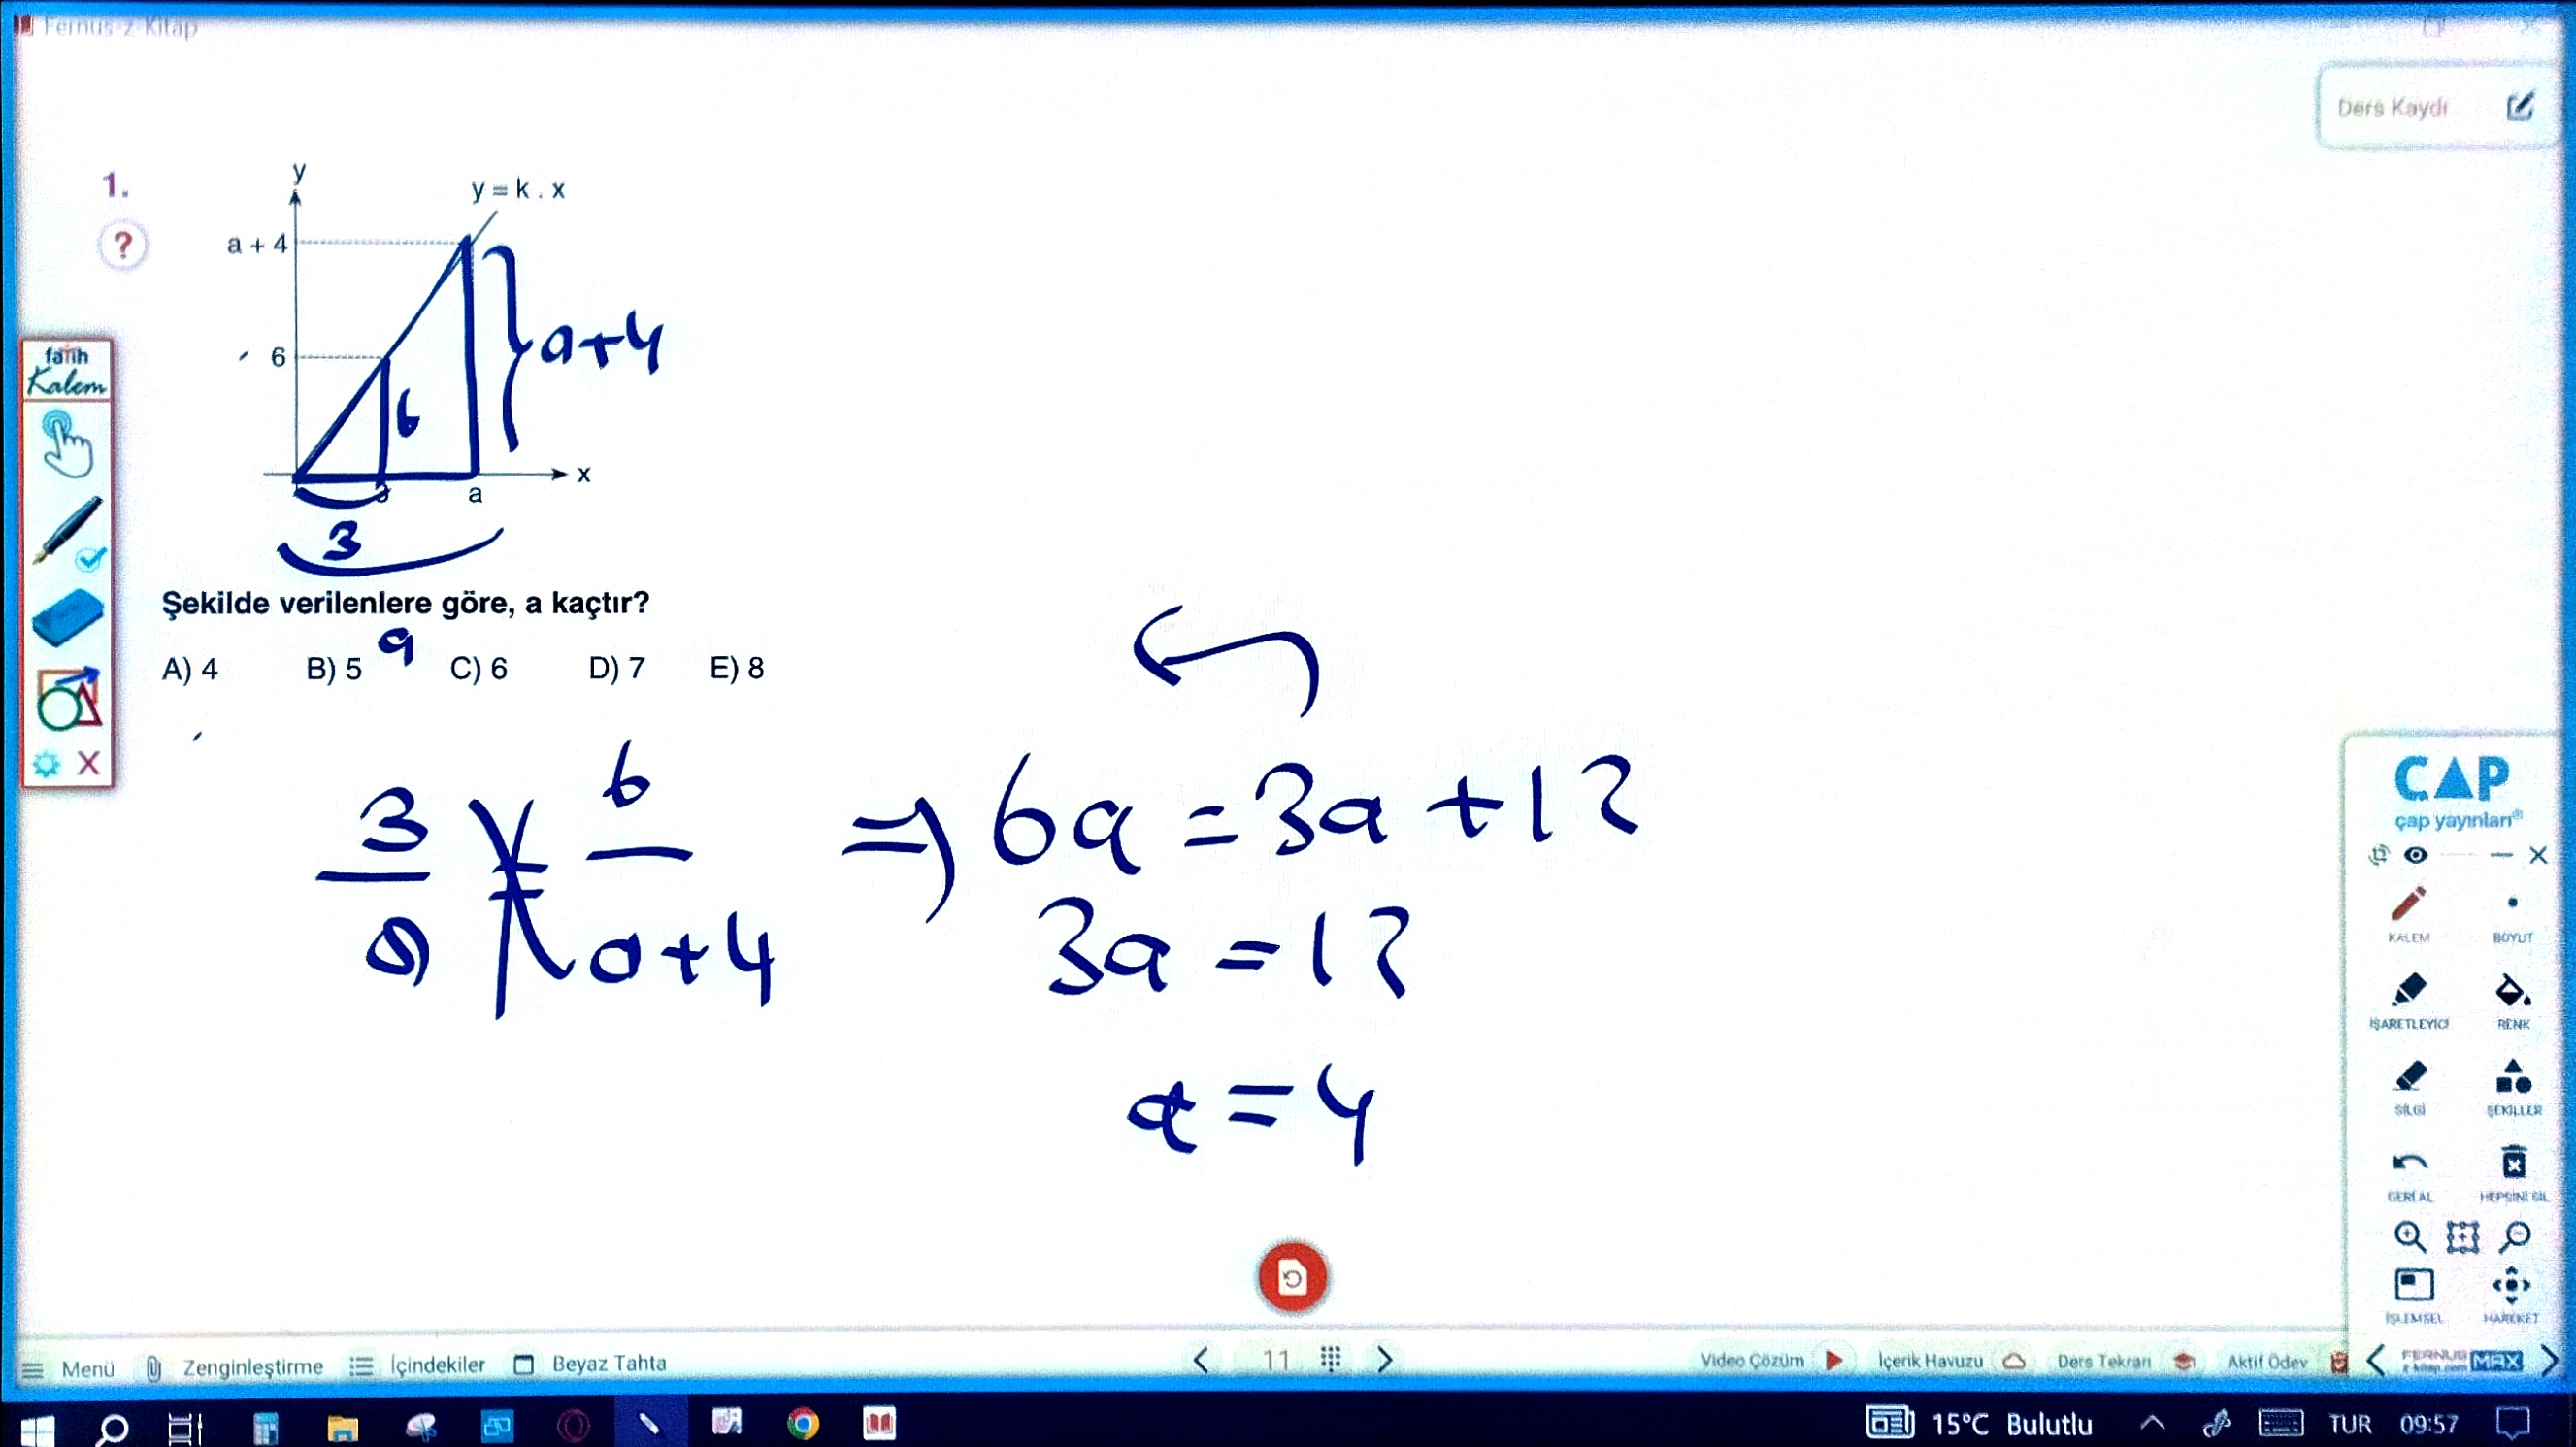 Fernus-z-Kitap
Ders Kaydı
1.
?
y
y = k . x
a + 4
6
a+4
6
3
a
x
3
Şekilde verilenlere göre, a kaçtır?
a
A) 4 B) 5 C) 6 D) 7 E) 8
3/a = 6/a+4 ⇒ 6a = 3a + 12
3a = 12
a = 4
fatih
Kalem
ÇAP
çap yayınları
KALEM BOYUT
İŞARETLEYİCİ RENK
SİLGİ ŞEKİLLER
GERİ AL HEPSİNİ SİL
İŞLEMSEL HAREKET
Menü Zenginleştirme İçindekiler Beyaz Tahta 11 Video Çözüm İçerik Havuzu Ders Tekrarı Aktif Ödev
FERNUS
z-kitap.com MAX
15°C Bulutlu TUR 09:57